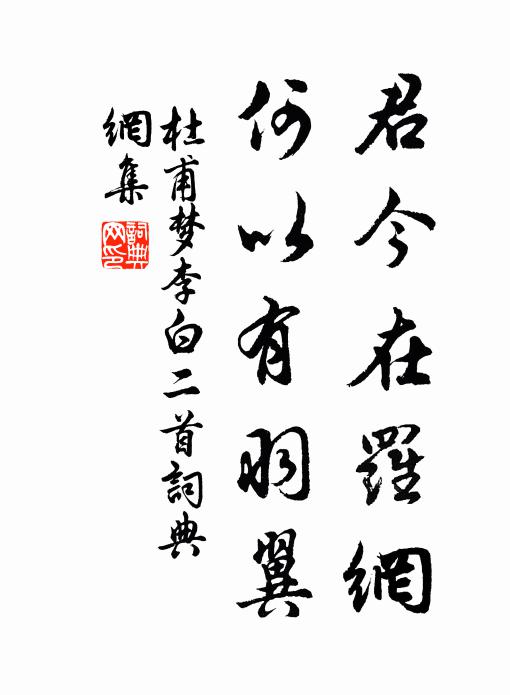 君今在羅網
何以有羽翼
杜甫梦李白二首詞典
網集
詞典网印